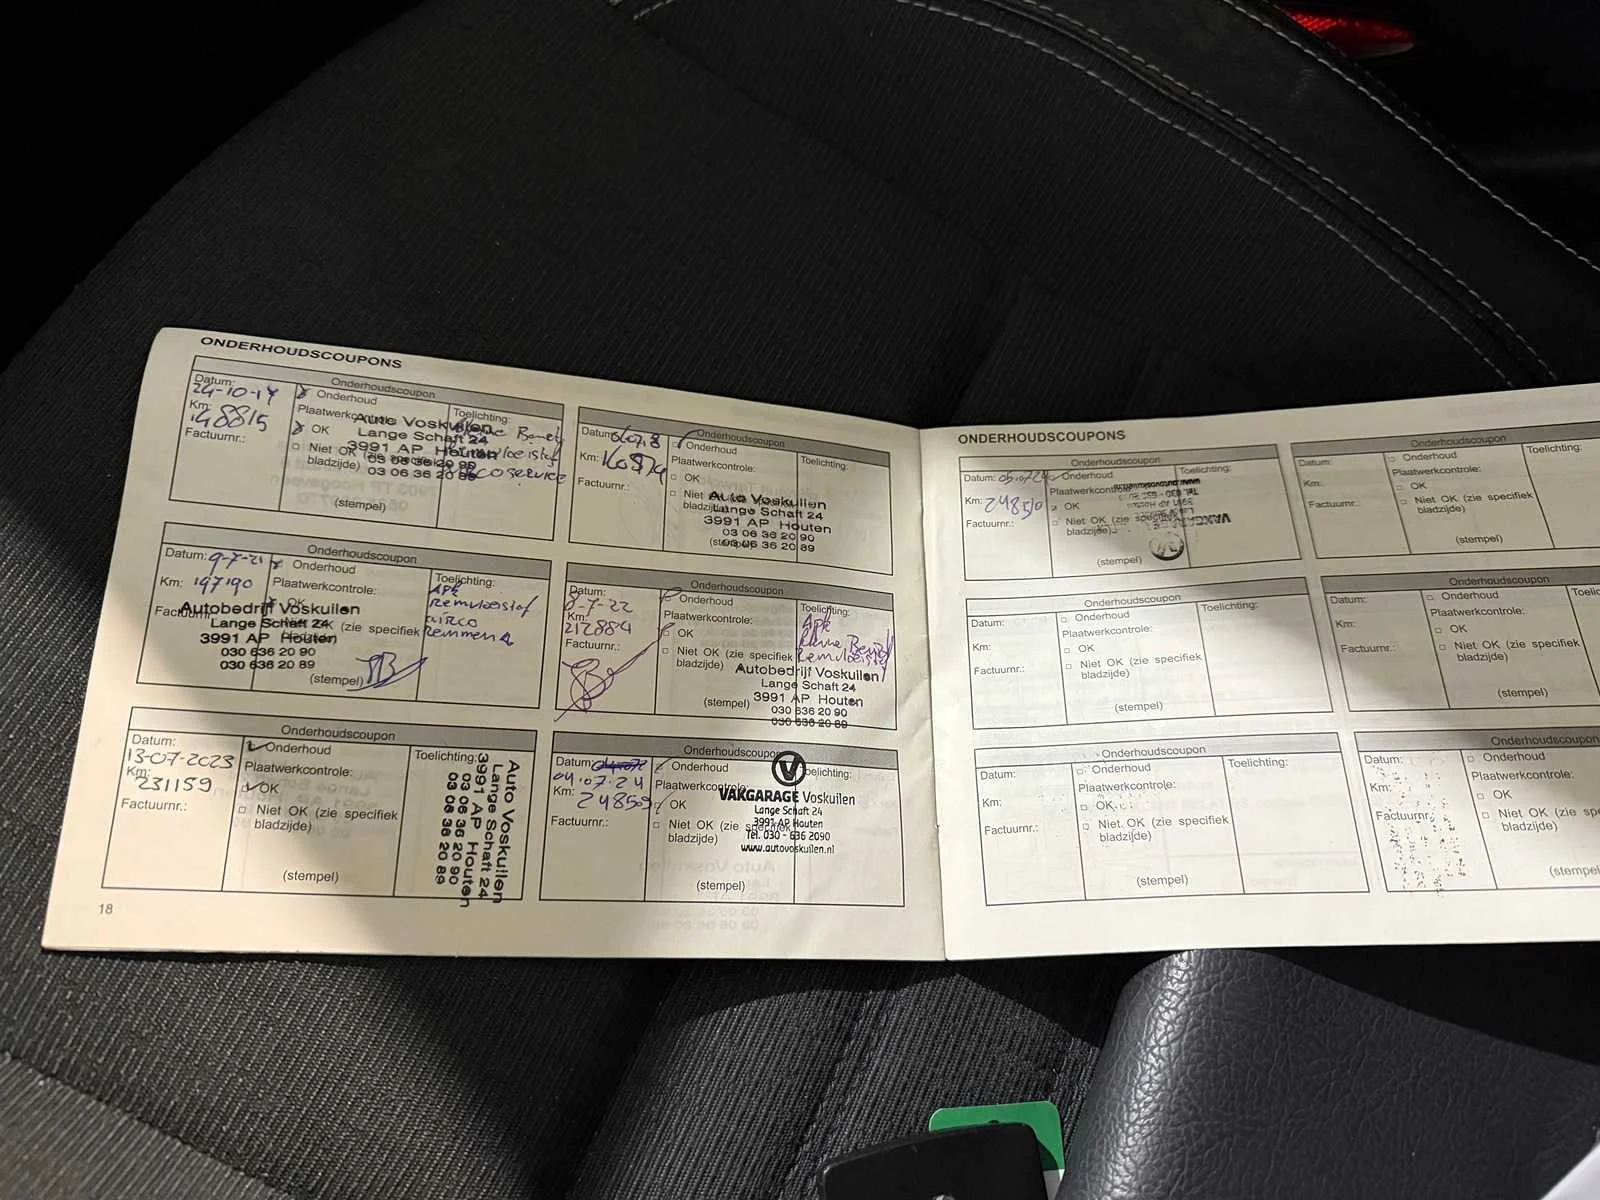 ONDERHOUDSCOUPONS
Onderhoudscoupon
Datum:
24-10-17
Km:
148815
Factuurnr.:
Onderhoud
Plaatwerkcontrole:
OK
Niet OK (zie specifiek
bladzijde)
(stempel)
Toelichting:
Auto Voskuilen
Lange Schaft 24
3991 AP Houten
03 06 36 20 90
03 06 36 20 89
Onderhoudscoupon
Datum:
Km:
Factuurnr.:
Onderhoud
Plaatwerkcontrole:
OK
Niet OK
bladzijde)
(stempel)
Toelichting:
Auto Voskuilen
Lange Schaft 24
3991 AP Houten
03 06 36 20 90
03 06 36 20 89
Onderhoudscoupon
Datum: 9-7-21
Km: 197190
Factuurnr.:
Onderhoud
Plaatwerkcontrole:
OK
Niet OK (zie specifiek
(stempel)
Toelichting:
APK
Remvloeistof
AIRCO
Remmen
Autobedrijf Voskuilen
Lange Schaft 24
3991 AP Houten
030 636 20 90
030 636 20 89
Onderhoudscoupon
Datum:
8-7-22
Km:
212884
Factuurnr.:
Onderhoud
Plaatwerkcontrole:
OK
Niet OK (zie specifiek
bladzijde)
(stempel)
Toelichting:
APK
Kleine Beurt
Remvloeistof
Autobedrijf Voskuilen
Lange Schaft 24
3991 AP Houten
030 636 20 90
030 636 20 89
Onderhoudscoupon
Datum:
13-07-2023
Km:
231159
Factuurnr.:
Onderhoud
Plaatwerkcontrole:
OK
Niet OK (zie specifiek
bladzijde)
(stempel)
Toelichting:
Auto Voskuilen
Lange Schaft 24
3991 AP Houten
03 06 36 20 90
03 06 36 20 89
Onderhoudscoupon
Datum:
04.07.24
Km:
248509
Factuurnr.:
Onderhoud
Plaatwerkcontrole:
OK
Niet OK (zie specifiek
bladzijde)
(stempel)
Toelichting:
V
VAKGARAGE Voskuilen
Lange Schaft 24
3991 AP Houten
Tel. 030 - 636 2090
www.autovoskuilen.nl
18
ONDERHOUDSCOUPONS
Onderhoudscoupon
Datum:
Km: 248510
Factuurnr.:
Onderhoud
Plaatwerkcontrole:
OK
Niet OK (zie specifiek
bladzijde)
(stempel)
Toelichting:
VAKGARAGE
Onderhoudscoupon
Datum:
Km:
Factuurnr.:
Onderhoud
Plaatwerkcontrole:
OK
Niet OK (zie specifiek
bladzijde)
(stempel)
Toelichting:
Onderhoudscoupon
Datum:
Km:
Factuurnr.:
Onderhoud
Plaatwerkcontrole:
OK
Niet OK (zie specifiek
bladzijde)
(stempel)
Toelichting:
Onderhoudscoupon
Datum:
Km:
Factuurnr.:
Onderhoud
Plaatwerkcontrole:
OK
Niet OK (zie specifiek
bladzijde)
(stempel)
Toelic
Onderhoudscoupon
Datum:
Km:
Factuurnr.:
Onderhoud
Plaatwerkcontrole:
OK
Niet OK (zie specifiek
bladzijde)
(stempel)
Toelichting:
Onderhoudscoupon
Datum:
Km:
Factuurnr.:
Onderhoud
Plaatwerkcontrole:
OK
Niet OK (zie specifiek
bladzijde)
(stempel)